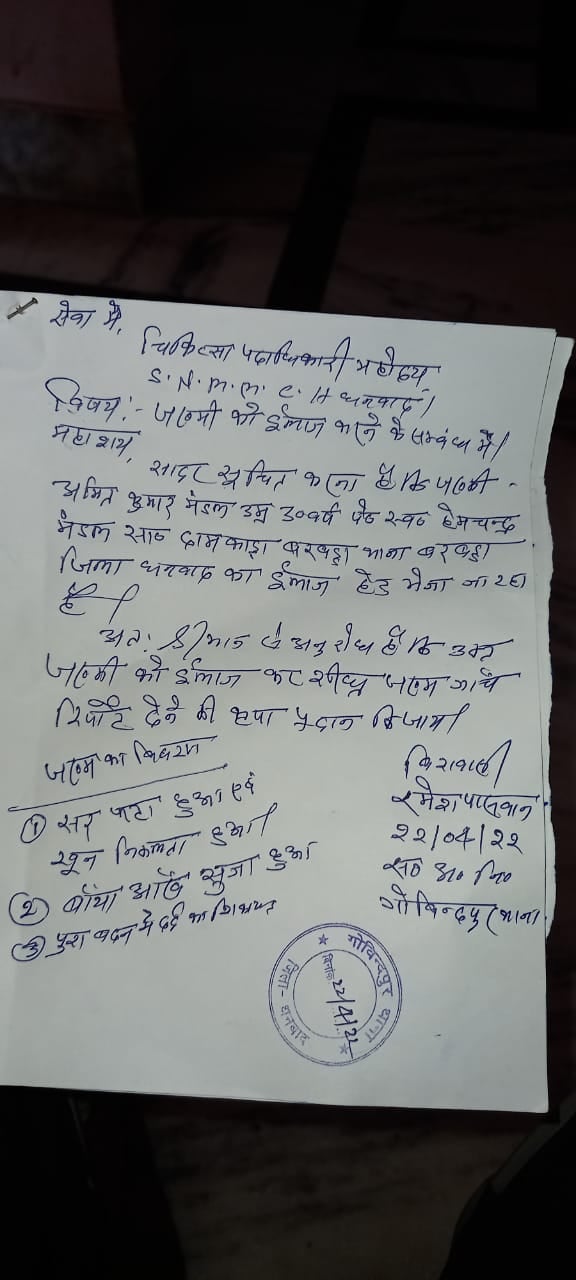 सेवा में,
चिकित्सा पदाधिकारी महोदय,
S.N.M.M.C.H धनबाद।
विषय:- जख्मी को ईलाज कराने के सम्बंध में।
महाशय,
सादर सूचित करना है कि जख्मी -
अमित कुमार मंडल उम्र 30वर्ष पे० स्व० हेमचन्द्र
मंडल सा० दामकाड़ा बरवड्डा थाना बरवड्डा
जिला धनबाद का ईलाज हेतु भेजा जा रहा
है।
अतः श्रीमान से अनुरोध है कि उक्त
जख्मी को ईलाज कर शीघ्र जख्म जाँच
रिपोर्ट देने की कृपा प्रदान किजाय।
जख्म का विवरण
① सर फटा हुआ एवं
खून निकलता हुआ।
② बाँया आँख सुजा हुआ
③ पुरा बदन में दर्द का शिकायत
विश्वासी
रमेश पासवान
22/04/22
स० अ० नि०
गोविन्दपुर थाना
गोविन्दपुर थाना
दिनांक 22/4/22
जिला - धनबाद